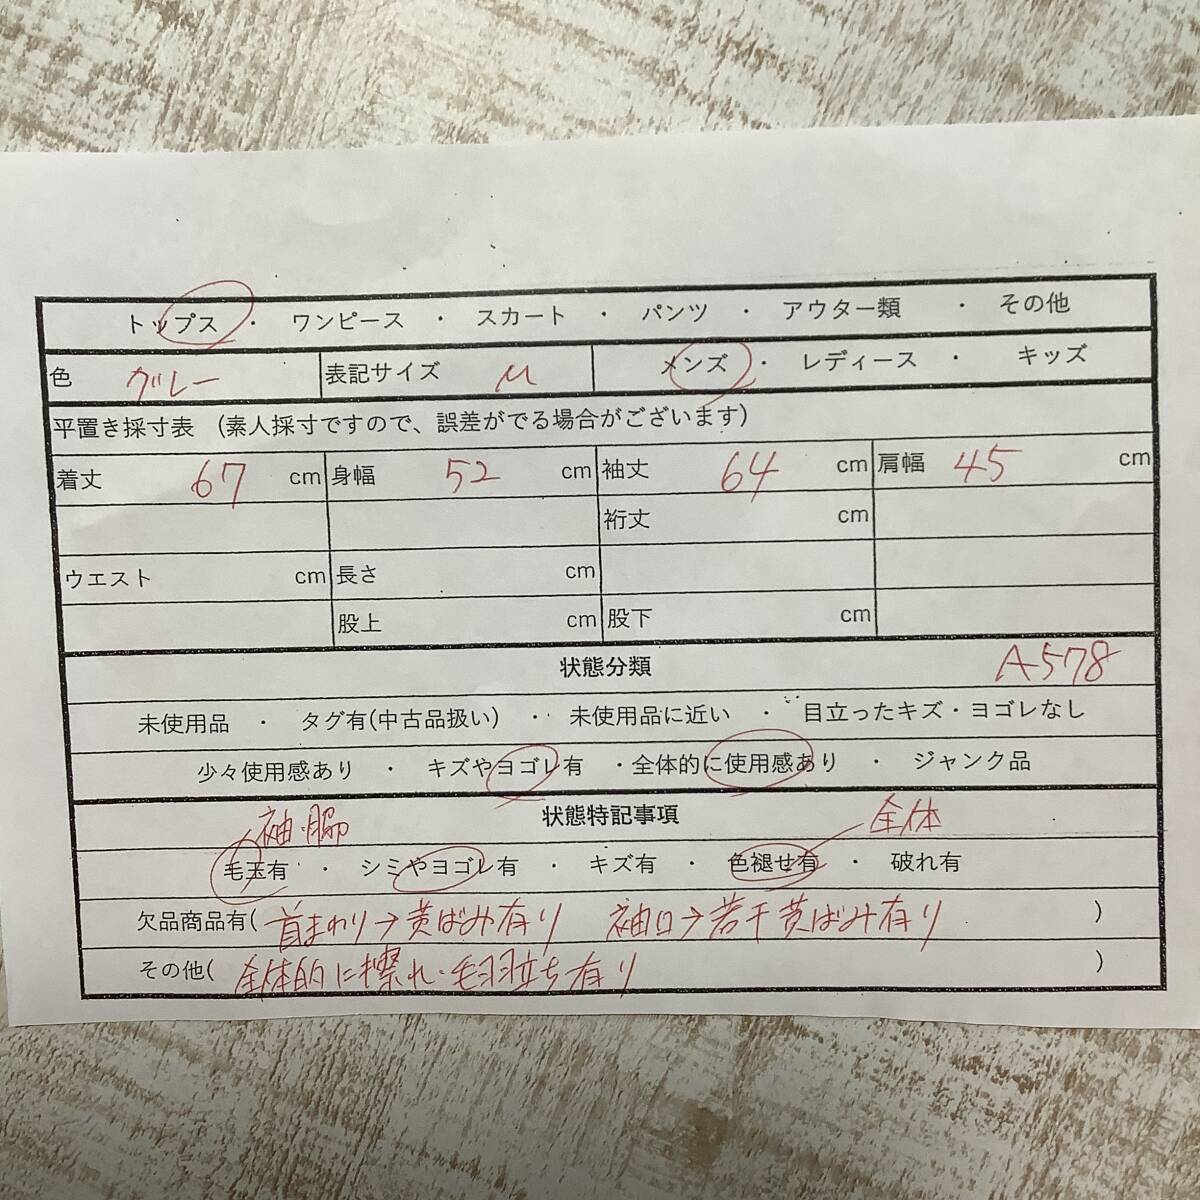 トップス ・ ワンピース ・ スカート ・ パンツ ・ アウター類 ・ その他
色 グレー 表記サイズ M メンズ ・ レディース ・ キッズ
平置き採寸表 (素人採寸ですので、誤差がでる場合がございます)
着丈 67 cm 身幅 52 cm 袖丈 64 cm 肩幅 45 cm
裄丈 cm
ウエスト cm 長さ cm
股上 cm 股下 cm
状態分類 A578
未使用品 ・ タグ有(中古品扱い) ・ 未使用品に近い ・ 目立ったキズ・ヨゴレなし
少々使用感あり ・ キズやヨゴレ有 ・全体的に使用感あり ・ ジャンク品
袖・脇 状態特記事項 全体
毛玉有 ・ シミやヨゴレ有 ・ キズ有 ・ 色褪せ有 ・ 破れ有
欠品商品有( 首まわり→黄ばみ有り 袖口→若干黄ばみ有り )
その他( 全体的に擦れ・毛羽立ち有り )